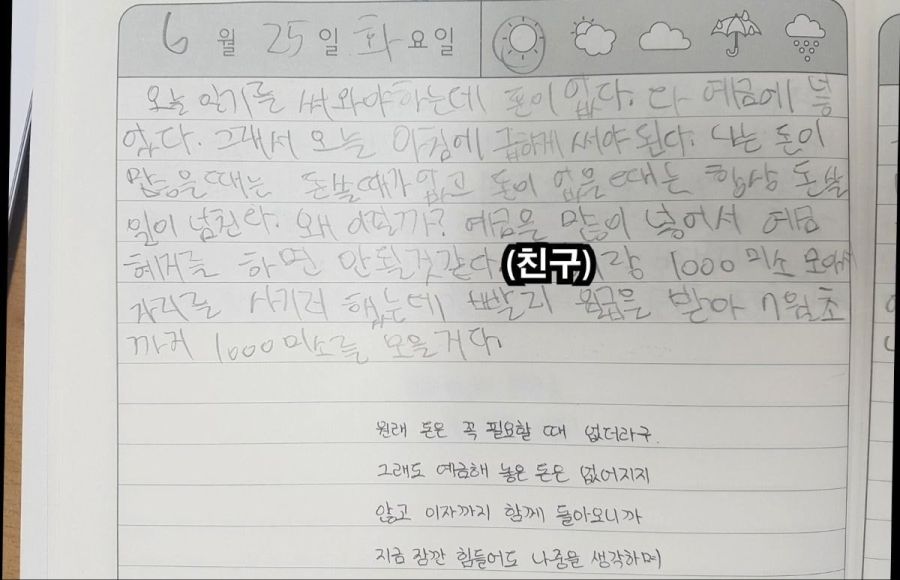 6월 25일 화요일
오늘 일기를 써와야하는데 돈이 없다. 다 예금에 넣
었다. 그래서 오늘 아침에 급하게 써야 된다. 나는 돈이
많을때는 돈쓸때가 없고 돈이 없을때는 항상 돈쓸
일이 넘친다. 왜 이럴까? 예금을 많이 넣어서 예금
해거를 하면 안될것같다 (친구)랑 1000미소 모아서
자리를 사기려 했는데 빨리 월급을 받아 7월초
까지 1000미소를 모을거다.
원래 돈은 꼭 필요할 때 없더라구.
그래도 예금해 놓은 돈은 없어지지
않고 이자까지 함께 돌아오니까
지금 잠깐 힘들어도 나중을 생각하며